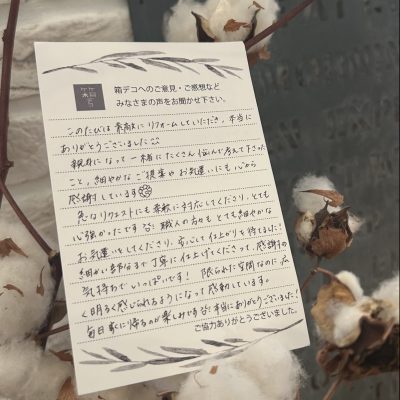 箱デコ
箱デコへのご意見・ご感想など
みなさまの声をお聞かせ下さい。
このたびは素敵にリフォームしていただき、本当に
ありがとうございました
親身になって一緒にたくさん悩んで考えて下さった
こと、細やかなご提案やお気遣いにも心から
感謝しています
急なリクエストにも柔軟に対応してくださり、とても
心強かったです 職人の方々もとても細やかな
お気遣いをしてくださり、安心して仕上がりを待てました!
細かい部分まで丁寧に仕上げてくださって、感謝の
気持ちでいっぱいです! 限られた空間なのに広
く明るく感じられるようになって感動しています。
毎日家に帰るのが楽しみです 本当にありがとうございました!
ご協力ありがとうございました。